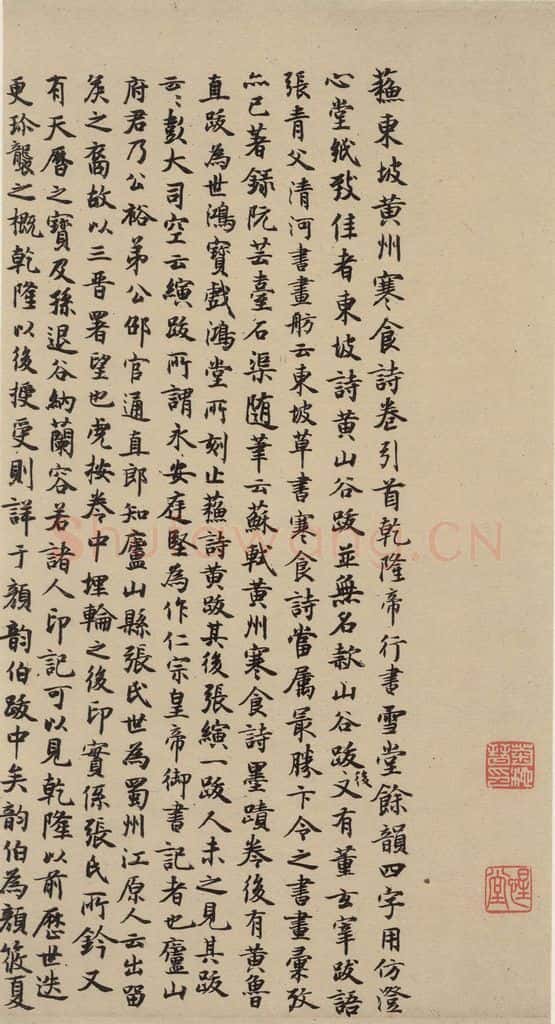 蘓東坡黄州寒食詩卷引首乾隆帝行書雪堂餘韻四字用仿澄
心堂紙致佳者東坡詩黄山谷跋並無名款山谷跋後又有董玄宰跋語
張青父清河書畫舫云東坡草書寒食詩當属最勝卞令之書畫彙攷
亦已著録阮芸臺石渠随筆云蘇軾黄州寒食詩墨蹟卷後有黄魯
直跋為世鴻寳戲鴻堂所刻止蘓詩黄跋其後張縯一跋人未之見其跋
云〻彭大司空云縯跋所謂永安庭堅為作仁宗皇帝御書記者也廬山
府君乃公裕弟公邵官通直郎知廬山縣張氏世為蜀州江原人云出留
矦之裔故以三晋署望也虎按卷中埋輪之後印實係張氏所鈐又
有天曆之寶及孫退谷納蘭容若諸人印記可以見乾隆以前歴世迭
更珎襲之概乾隆以後授受則詳于顔韵伯跋中矣韵伯為顔筱夏
Shufawang.CN